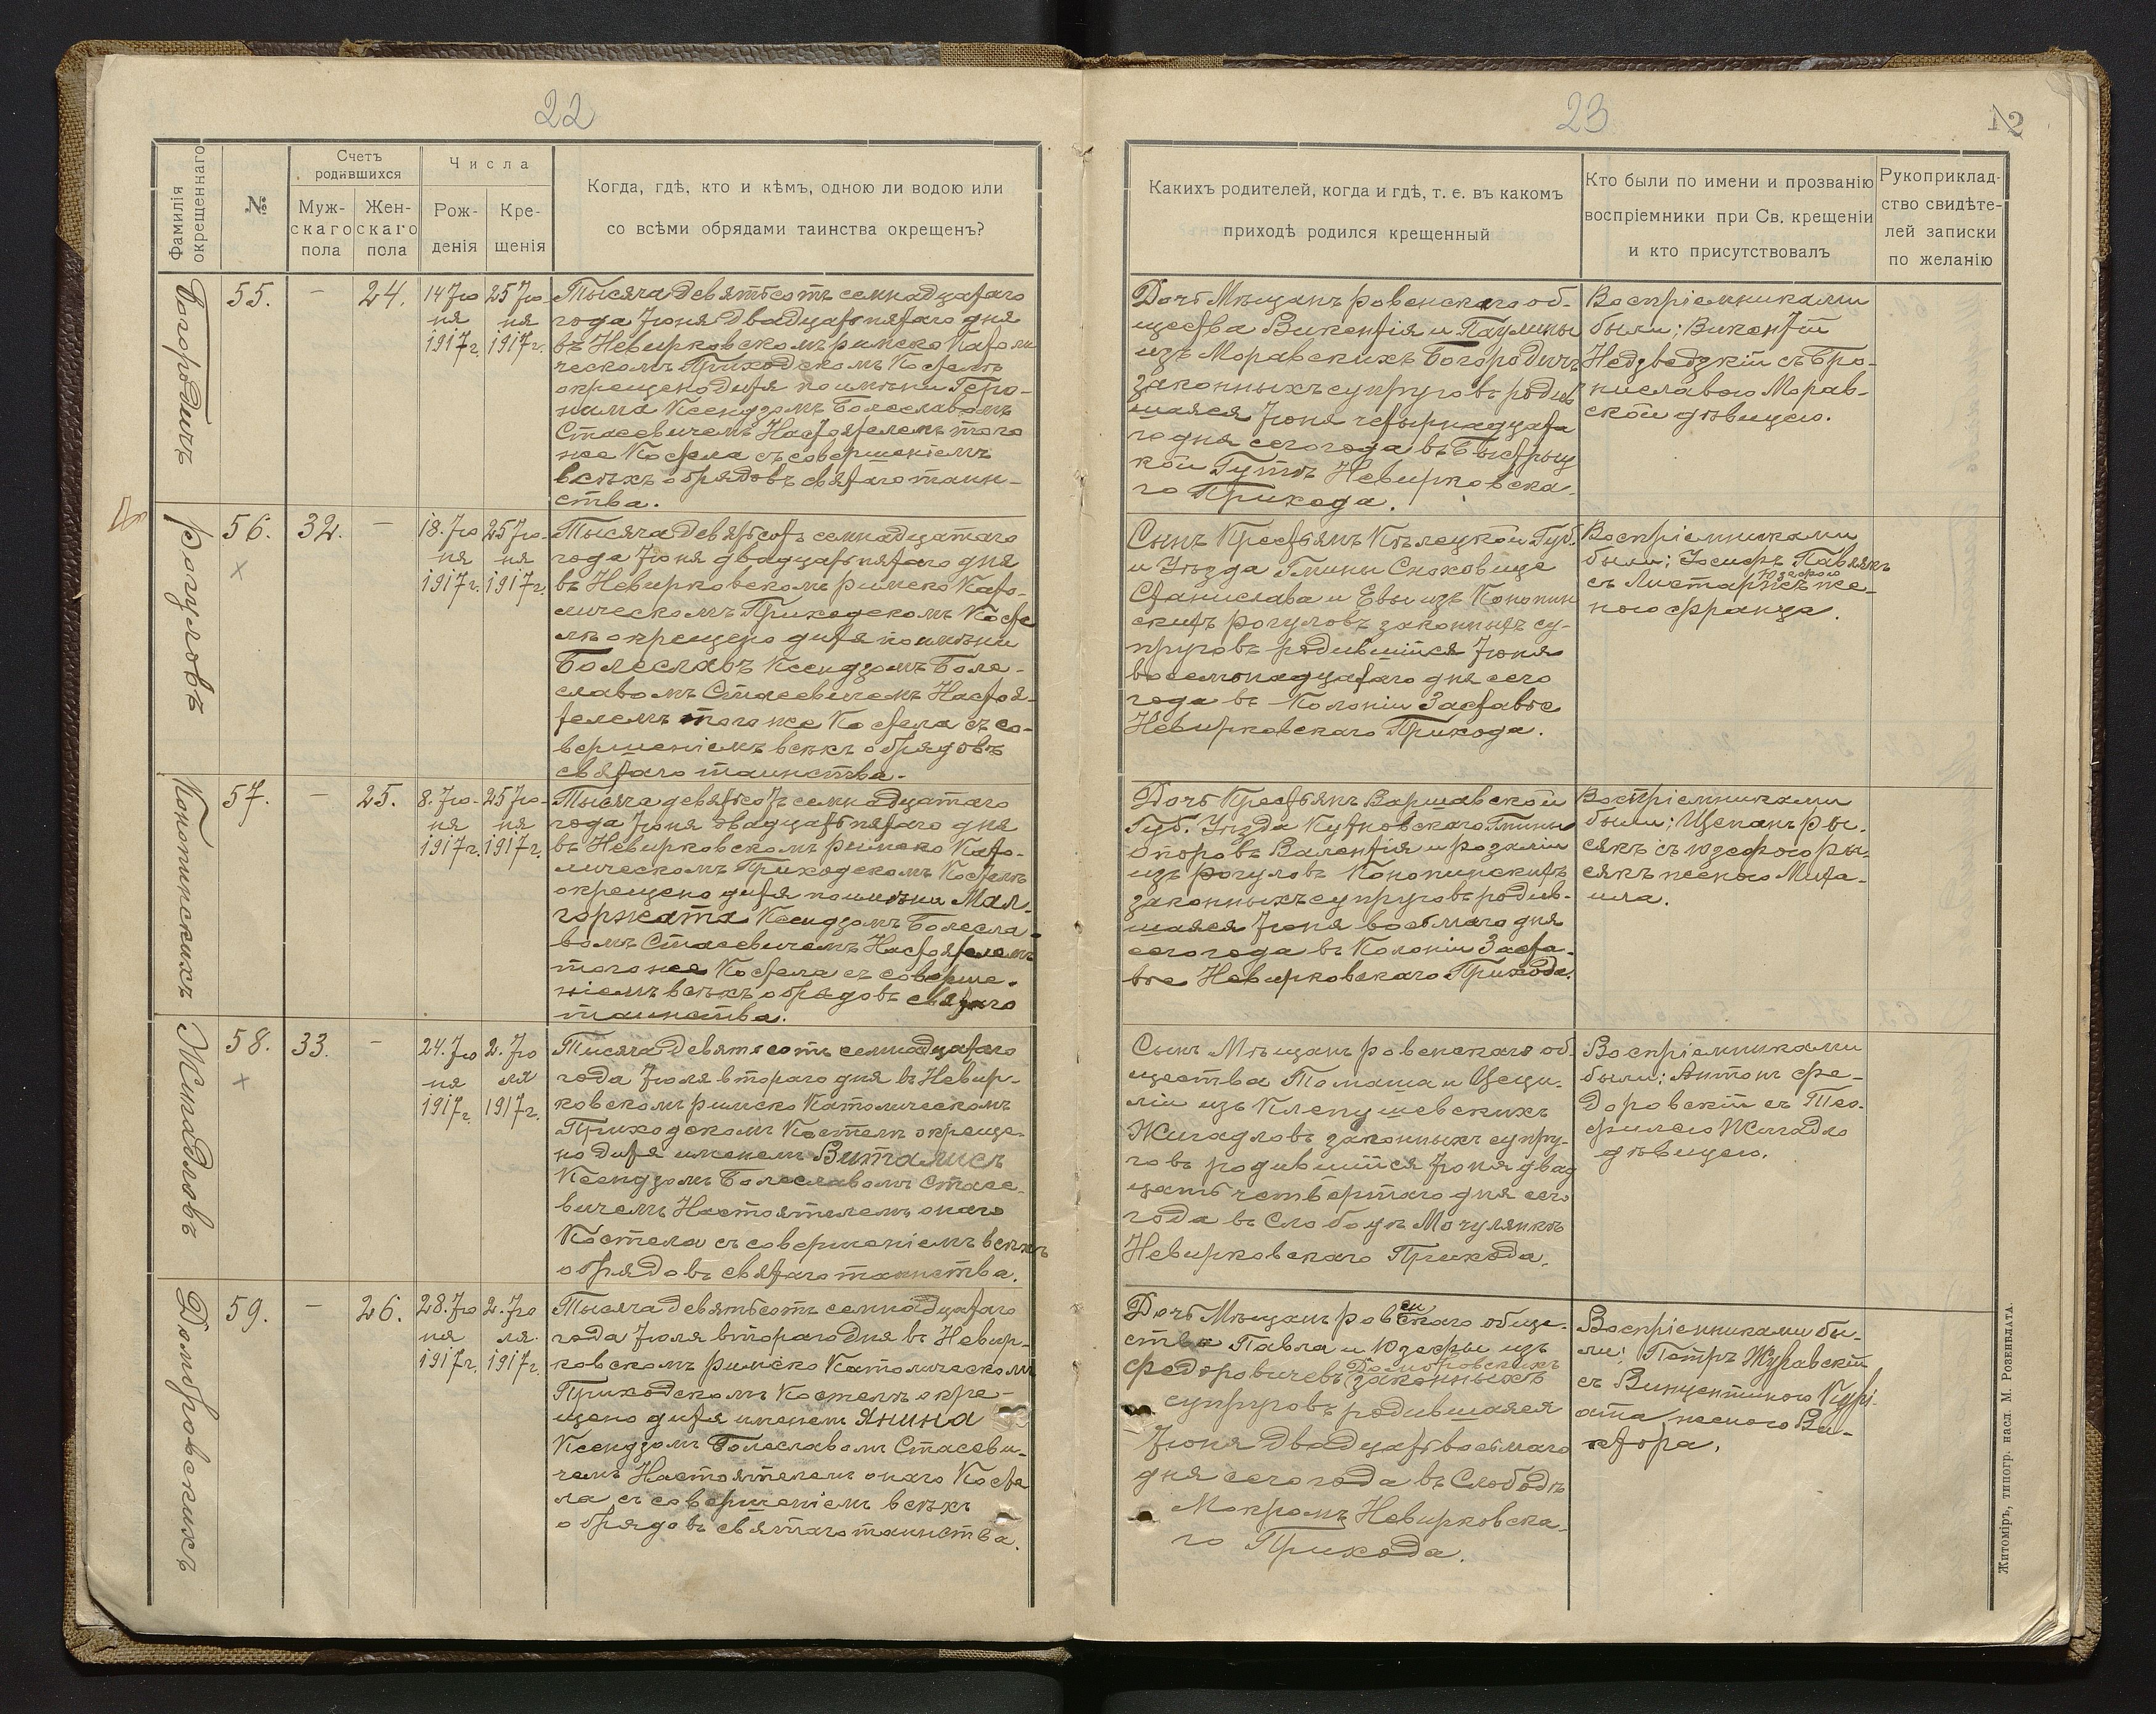 22
Фамилія окрещеннаго
№
Счетъ родившихся
Мужскаго пола
Женскаго пола
Числа
Рожденія
Крещенія
Когда, гдѣ, кто и кѣмъ, одною ли водою или
со всѣми обрядами таинства окрещенъ?
Богородичъ
55.
—
24.
14 Ію
ня
1917 г.
25 Ію
ня
1917 г.
Тысяча девятьсотъ семнадцатаго
года Іюня двадцатьпятаго дня
въ Невирковскомъ римско Католи
ческомъ Приходскомъ Костелѣ
окрещено дитя по имени Геро-
нима Ксендзомъ Болеславомъ
Стасевичемъ Настоятелемъ того
же Костела съ совершеніемъ
всѣхъ обрядовъ святаго таин-
ства.
Рогуловъ
56.
×
32.
—
18. Ію
ня
1917 г.
25 Ію-
ня
1917 г.
Тысяча девятьсотъ семнадцатаго
года Іюня двадцатьпятаго дня
въ Невирковскомъ римско Като-
лическомъ Приходскомъ Косте
лѣ окрещено дитя по имени
Болеславъ Ксендзомъ Боле-
славомъ Стасевичемъ Настоя-
телемъ того же Костела съ со-
вершеніемъ всѣхъ обрядовъ
святаго таинства.
Конопинскихъ
57.
—
25.
8. Ію-
ня
1917 г.
25 Ію-
ня
1917 г.
Тысяча девятьсотъ семнадцатаго
года Іюня двадцатьпятаго дня
въ Невирковскомъ римско Като-
лическомъ Приходскомъ Костелѣ
окрещено дитя по имени Мал-
горжата Ксендзомъ Болесла-
вомъ Стасевичемъ Настоятелемъ
того же Костела съ соверше-
ніемъ всѣхъ обрядовъ святаго
таинства.
Жигадловъ
58.
×
33.
—
24. Ію
ня
1917 г.
2. Ію
ля
1917 г.
Тысяча девятьсотъ семнадцатаго
года Іюля втораго дня въ Невир-
ковскомъ римско Католическомъ
Приходскомъ Костелѣ окреще-
но дитя именемъ Виталисъ
Ксендзомъ Болеславомъ Стасе-
вичемъ Настоятелемъ онаго
Костела съ совершеніемъ всѣхъ
обрядовъ святаго таинства.
Домбровскихъ
59.
—
26.
28. Ію
ня
1917 г.
2. Ію
ля.
1917 г.
Тысяча девятьсотъ семнадцатаго
года Іюля втораго дня въ Невир-
ковскомъ римско Католическомъ
Приходскомъ Костелѣ окре-
щено дитя именемъ Янина
Ксендзомъ Болеславомъ Стасеви-
чемъ Настоятелемъ онаго Косте
ла съ совершеніемъ всѣхъ
обрядовъ святаго таинства.
23
12
Какихъ родителей, когда и гдѣ, т. е. въ какомъ
приходѣ родился крещенный
Кто были по имени и прозванію
воспріемники при Св. крещеніи
и кто присутствовалъ
Рукоприклад-
ство свидѣте-
лей записки
по желанію
Дочь Мѣщанъ Ровенскаго об-
щества Викентія и Паулины
изъ Моравскихъ Богородичъ
законныхъ супруговъ родив
шаяся Іюня четырнадцата
го дня сего года въ Быстрыц
кой Гутѣ Невирковска-
го Прихода.
Воспріемниками
были: Викентій
Недзведзкій съ Бро-
ниславою Морав-
ской дѣвицею.
Сынъ Крестьянъ Кѣлецкой Губ.
и Уѣзда Гмины Сноховице
Станислава и Евы изъ Конопин
скихъ Рогуловъ законныхъ су-
пруговъ родившійся Іюня
восемнадцатаго дня сего
года въ Колоніи Заставье
Невирковскаго Прихода.
Воспріемниками
были: Іосифъ Павлякъ
Юзефою
съ Листаржъ же-
ною Франца.
Дочь Крестьянъ Варшавской
Губ. Уѣзда Кутновскаго Гмины
Опоровъ Валентія и Розаліи
изъ Рогуловъ Конопинскихъ
законныхъ супруговъ родив-
шаяся Іюня восьмаго дня
сего года въ Колоніи Заста-
вье Невирковскаго Прихода.
Воспріемниками
были: Щепанъ Ры-
сякъ съ Юзефою Ры-
сякъ женою Миха-
ила.
Сынъ Мѣщанъ Ровенскаго об-
щества Томаша и Цеци-
ліи изъ Клепушевскихъ
Жигадловъ законныхъ супру-
говъ родившійся Іюня двад
цать четвертаго дня сего
года въ Слободѣ Мочулянкѣ
Невирковскаго Прихода.
Воспріемниками
были: Антонъ Фе-
доровскій съ Тео-
филею Жигадло
дѣвицею.
Дочь Мѣщанъ Ровенскаго обще-
ства Павла и Юзефы изъ
Домбровскихъ
Федоровичевъ законныхъ
супруговъ родившаяся
Іюня двадцатьвосьмаго
дня сего года въ Слободѣ
Мокромъ Невирковска-
го Прихода.
Воспріемниками бы-
ли: Петръ Журавскій
съ Винцентиною
женою Ви-
ктора.
Житоміръ, типогр. насл. М. Розенблата.